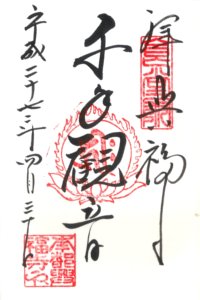 奉拝 興福寺
千手観音
平成二十七年四月三十日